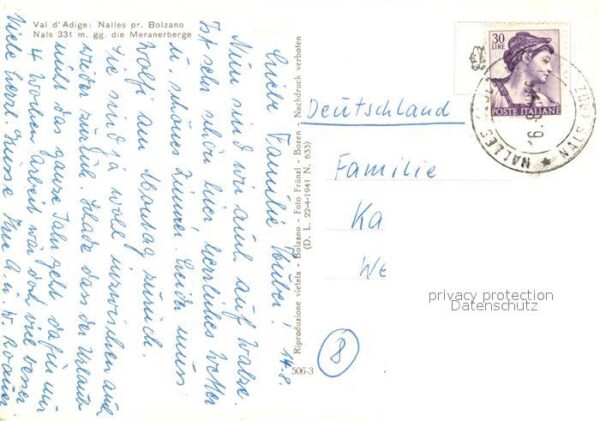 Val d'Adige: Nalles pr. Bolzano
Nals 331 m. gg. die Meranerberge
Liebe Familie Huber! 14.8.
Nun sind wir auch auf Walze.
Ist sehr schön hier herrliches Wetter
u. schönes Zimmer. Leider muss
Wolfi am Montag zurück.
Sie sind ja wohl inzwischen auch
wieder zurück. Schade dass der Urlaub
nicht das ganze Jahr geht dafür nur
4 Wochen Arbeit wär doch viel besser
Viele herzl. Grüsse Ihre
Riproduzione vietata - Bolzano - Foto Fränzl - Bozen - Nachdruck verboten
(D. L. 22-4-1941 N. 633)
506-3
8
30
LIRE
POSTE ITALIANE
NALLES
Deutschland
Familie
Ka
We
privacy protection
Datenschutz